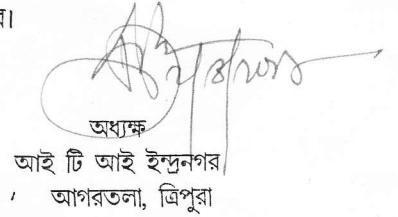 র।
অধ্যক্ষ
আই টি আই ইন্দ্রনগর
আগরতলা, ত্রিপুরা